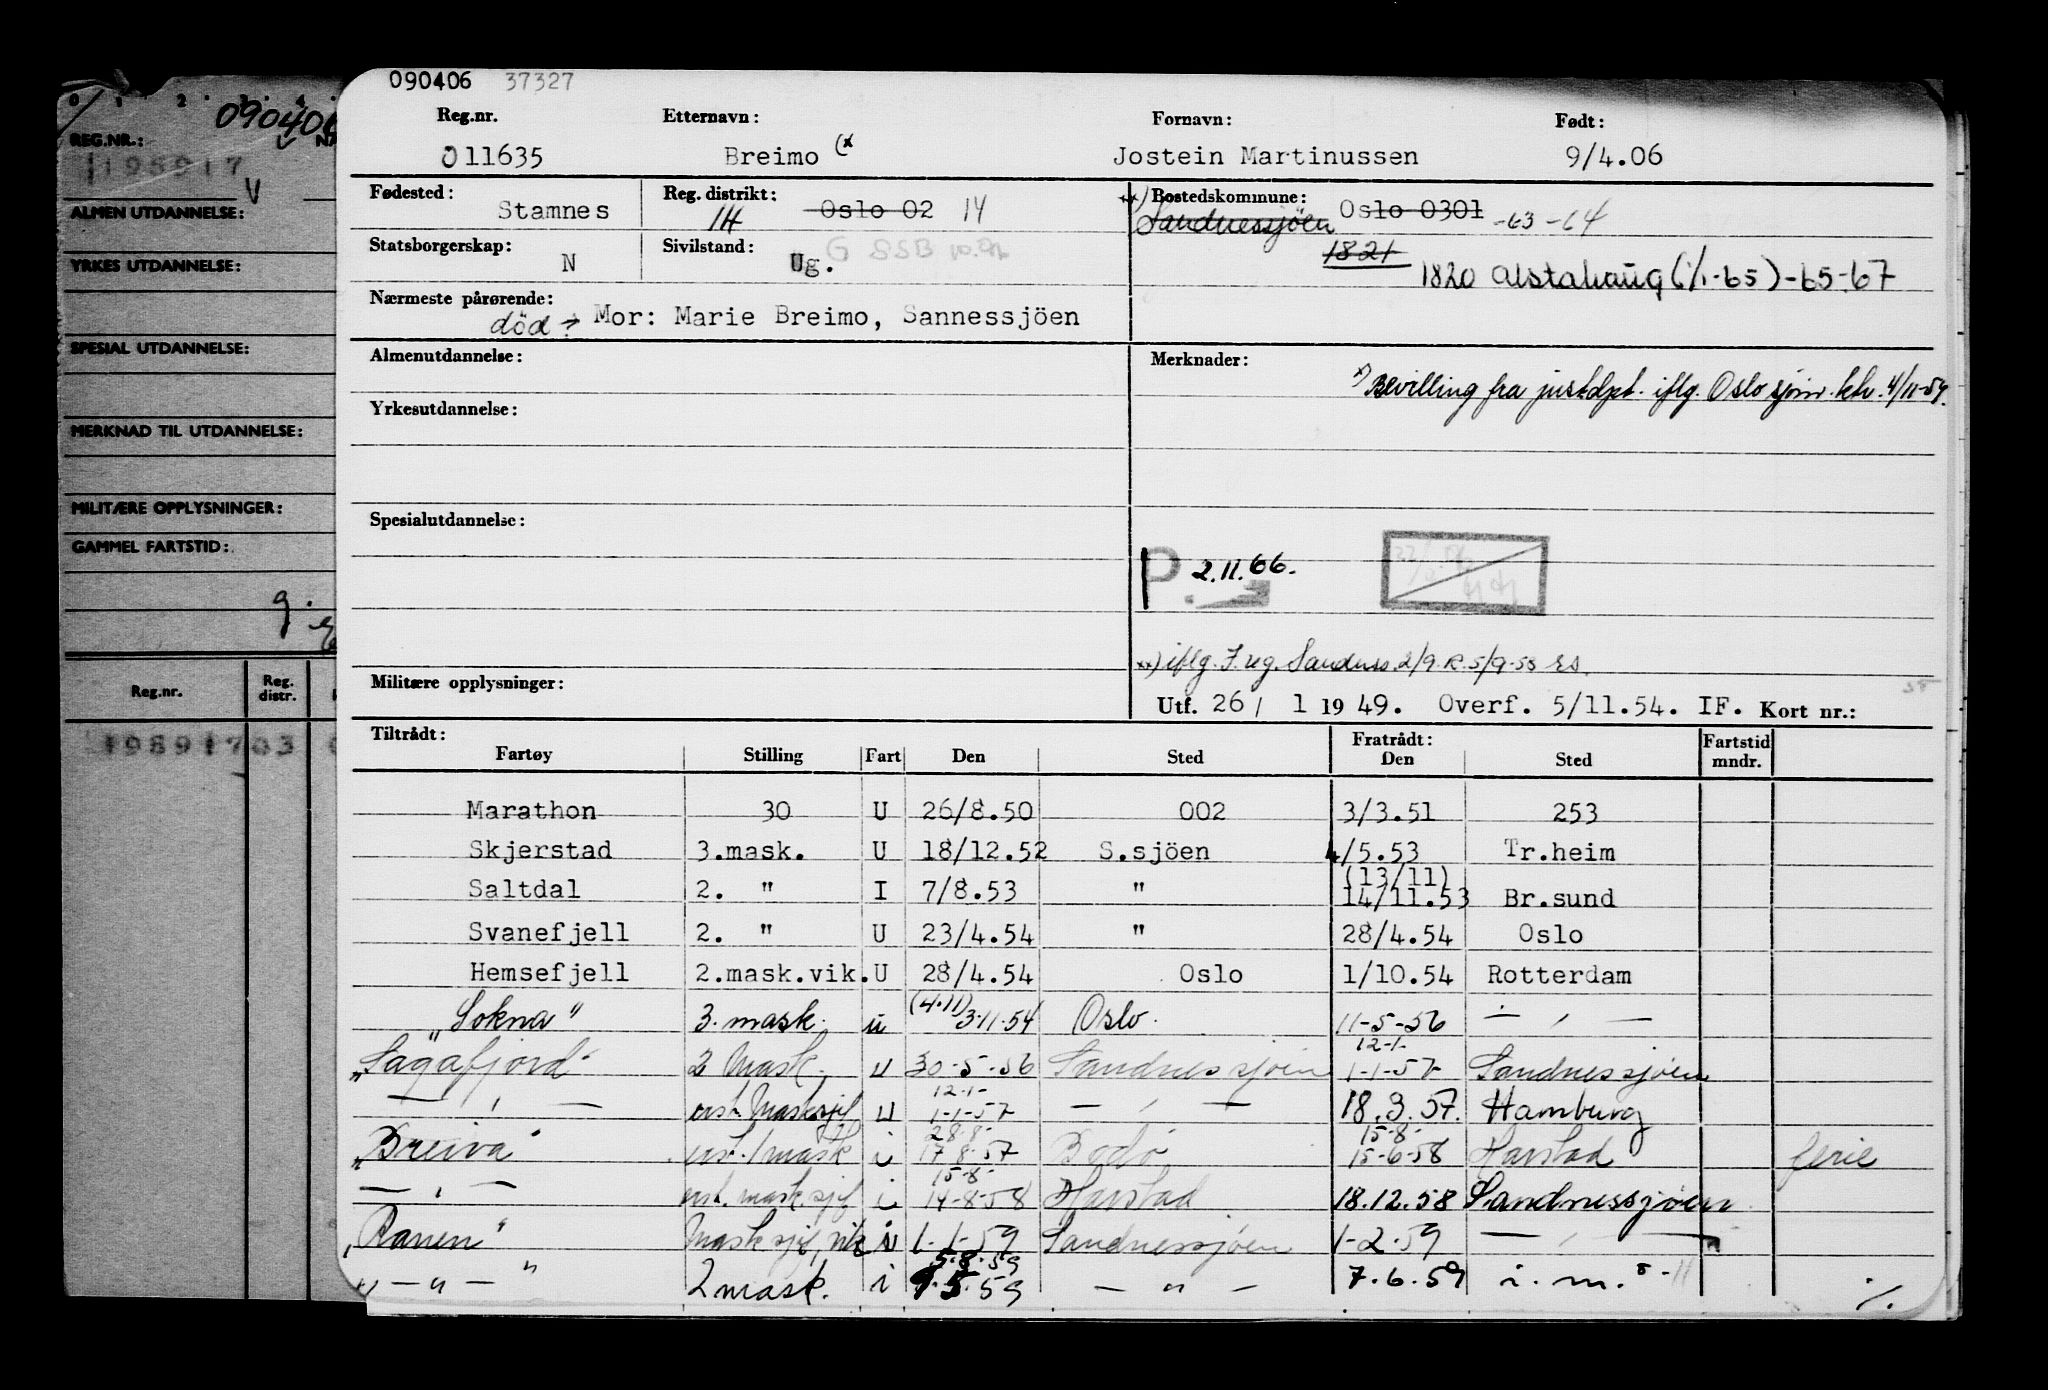 090406 37327
Reg.nr. Etternavn: Fornavn: Født:
011635 Breimo (* Jostein Martinussen 9/4.06
Fødested: Stamnes Reg. distrikt: 14 Oslo 02 14 **) Bostedskommune: Sandnessjöen Oslo 0301 -63-64
1821
1820 Alstahaug (1/1-65)-65-67
Statsborgerskap: N Sivilstand: Ug. G SSB
Nærmeste pårørende: död → Mor: Marie Breimo, Sannessjöen
Almenutdannelse: Merknader:
*) Bevilling fra just.dpt. iflg. Oslo sjøm.ktr. 4/11-54.
Yrkesutdannelse:
Spesialutdannelse:
P 2.11.66.
**) iflg. F.reg. Sandness. 2/9. R. 5/9-58
Militære opplysninger:
Utf. 26/ 1 1949. Overf. 5/11.54. IF. Kort nr.:
Tiltrådt: Fratrådt: Fartstid mndr.
Fartøy Stilling Fart Den Sted Den Sted
Marathon 30 U 26/8.50 002 3/3.51 253
Skjerstad 3.mask. U 18/12.52 S.sjöen 4/5.53 Tr.heim
Saltdal 2. " I 7/8.53 " (13/11) 14/11.53 Br.sund
Svanefjell 2. " U 23/4.54 " 28/4.54 Oslo
Hemsefjell 2.mask.vik. U 28/4.54 Oslo 1/10.54 Rotterdam
"Sokna" 3. mask. u (4.11) 3.11.54 Oslo. 11-5-56 — " —
"Sagafjord" 2 Mask. u 30-5-56 Sandnessjøen 12-1- 1-1-57 Sandnessjøen
— " — Mask.sjef u 12-1- 1-1-57 — " — 18.3.57. Hamburg
"Breiva" 1 mask i 28-8- 17-8-57 Bodø 15-8- 15-6-58 Harstad ferie
— " — mask.sjef i 15-8- 14-8-58 Harstad 18.12.58 Sandnessjøen
"Ranen" Mask sjef, vik i 1-1-59 Sandnessjøen 1-2-59 — " —
" — " — " 2 mask. i 5.8.59 9.5.59 — " — 7.6.59 i. m. 8-11
%.
0 1 2 3 4
090406
REG.NR.: NA
198917
V
ALMEN UTDANNELSE:
YRKES UTDANNELSE:
SPESIAL UTDANNELSE:
MERKNAD TIL UTDANNELSE:
MILITÆRE OPPLYSNINGER:
GAMMEL FARTSTID:
9.
Reg.nr. Reg. distr.
198917 03